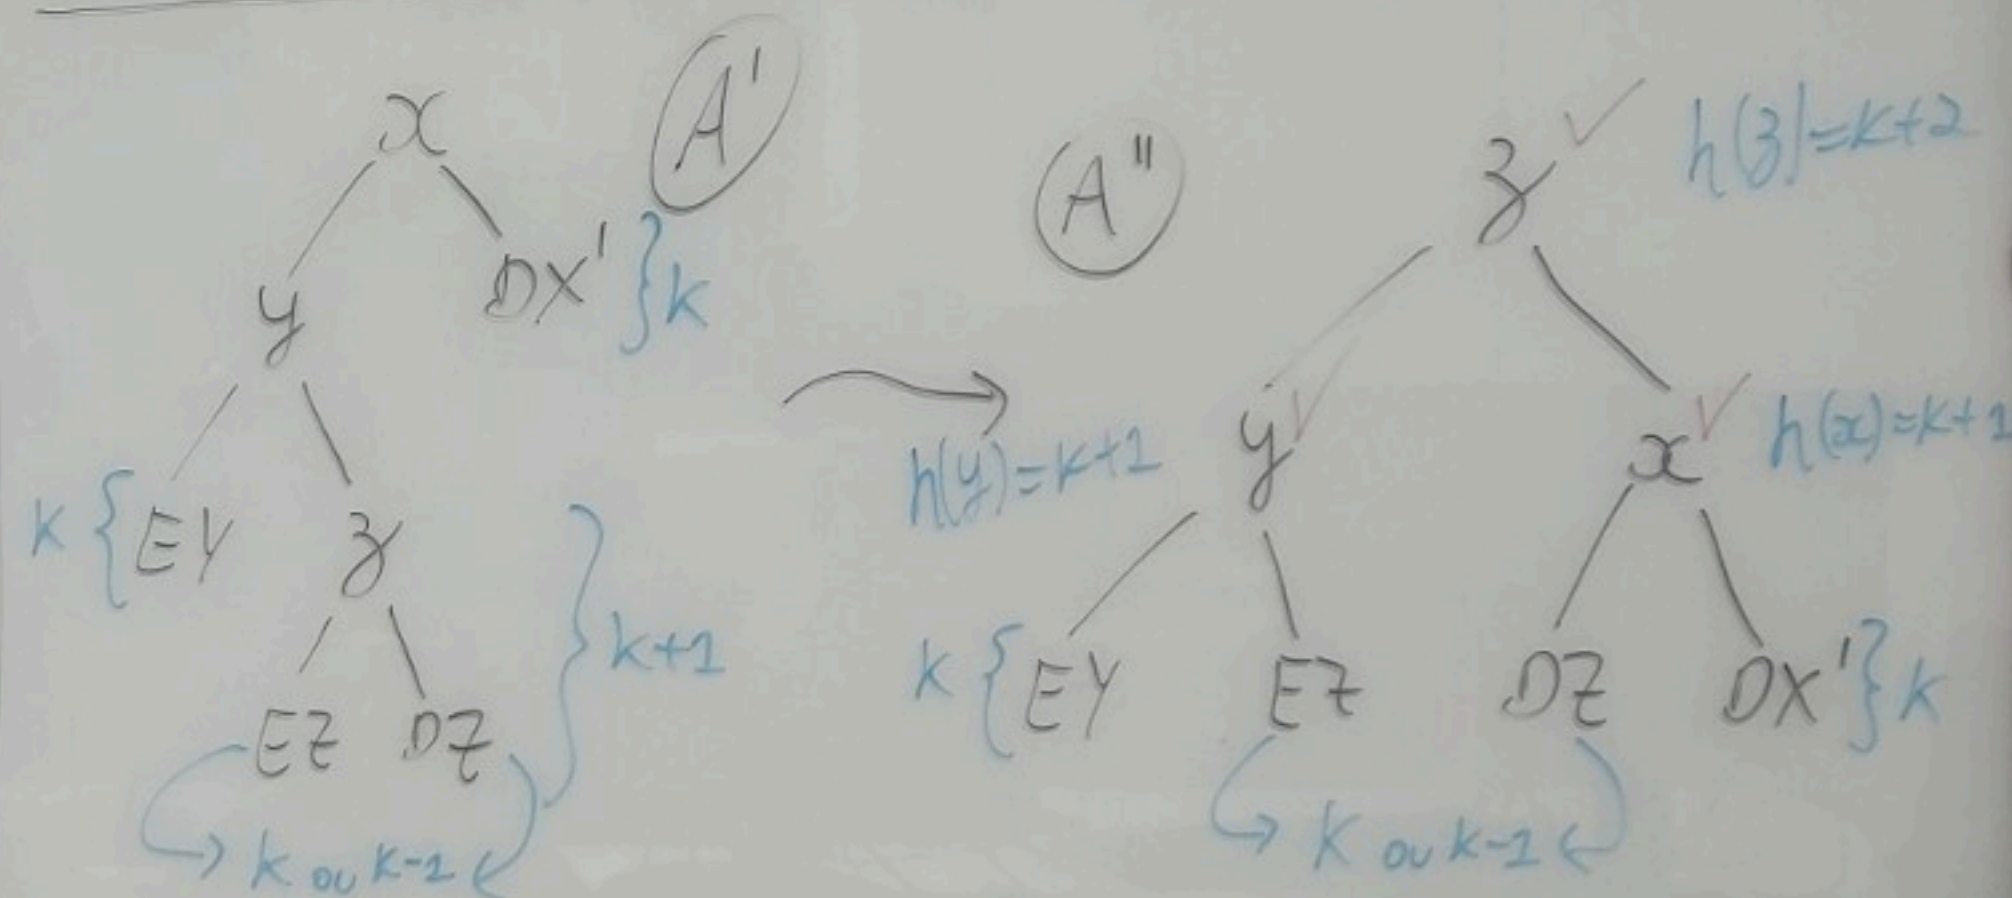 x
A'
y
DX' } k
k { EY
z
} k+1
EZ DZ
k ou k-1
A''
z ✓ h(z)=k+2
h(y)=k+1
y ✓
x ✓ h(x)=k+1
k { EY EZ DZ DX' } k
k ou k-1